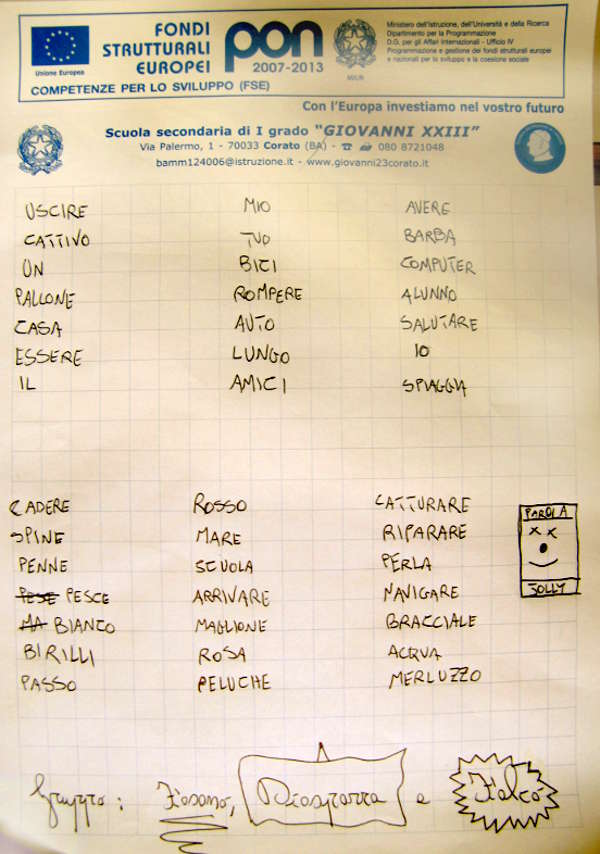 FONDI
STRUTTURALI
EUROPEI
pon
2007-2013
Unione Europea
MIUR
Ministero dell'Istruzione, dell'Università e della Ricerca
Dipartimento per la Programmazione
D.G. per gli Affari Internazionali - Ufficio IV
Programmazione e gestione dei fondi strutturali europei
e nazionali per lo sviluppo e la coesione sociale
COMPETENZE PER LO SVILUPPO (FSE)
Con l'Europa investiamo nel vostro futuro
Scuola secondaria di I grado "GIOVANNI XXIII"
Via Palermo, 1 - 70033 Corato (BA) - 080 8721048
bamm124006@istruzione.it - www.giovanni23corato.it
USCIRE MIO AVERE
CATTIVO TUO BARBA
UN BICI COMPUTER
PALLONE ROMPERE ALUNNO
CASA AUTO SALUTARE
ESSERE LUNGO IO
IL AMICI SPIAGGIA
CADERE ROSSO CATTURARE
SPINE MARE RIPARARE
PENNE SCUOLA PERLA
PESE PESCE ARRIVARE NAVIGARE
MA BIANCO MAGLIONE BRACCIALE
BIRILLI ROSA ACQUA
PASSO PELUCHE MERLUZZO
PAROLA
JOLLY
Gruppo: Diasparra e Falcó